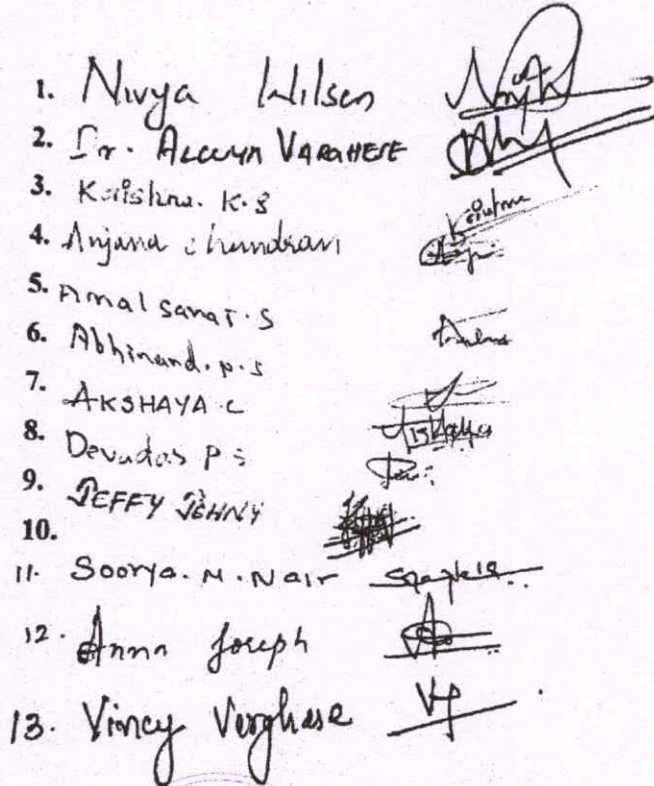 1. Nivya Wilson
2. Dr. VARGHESE
3. Krishna. K.S
4. Anjana Chandran
5. Amal Sanat. S
6. Abhinand. P. S
7. AKSHAYA. C
8. Devadas P S
9. JEFFY JOHNY
10.
11. Soorya. M. Nair
12. Anna Joseph
13. Vincy Varghese